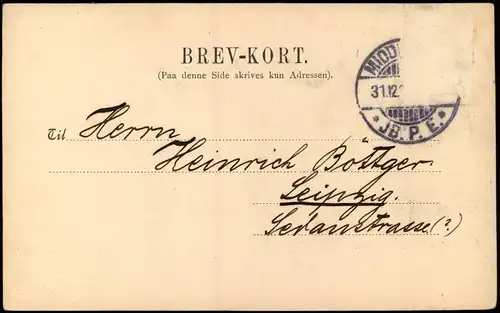 BREV-KORT.
(Paa denne Side skrives kun Adressen).
MIDD
31.12.
* JB. P. E. *
Til Herrn
Heinrich Böttger
Leipzig.
Sedanstrasse(?)